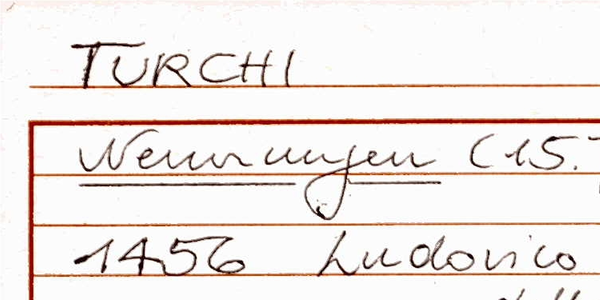 TURCHI
Nennungen (15.
1456 Ludovico